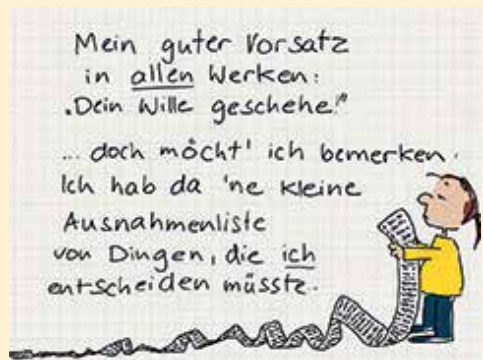 Mein guter Vorsatz
in allen Werken:
„Dein Wille geschehe!"
... doch möcht' ich bemerken:
Ich hab da 'ne kleine
Ausnahmenliste
von Dingen, die ich
entscheiden müsste.